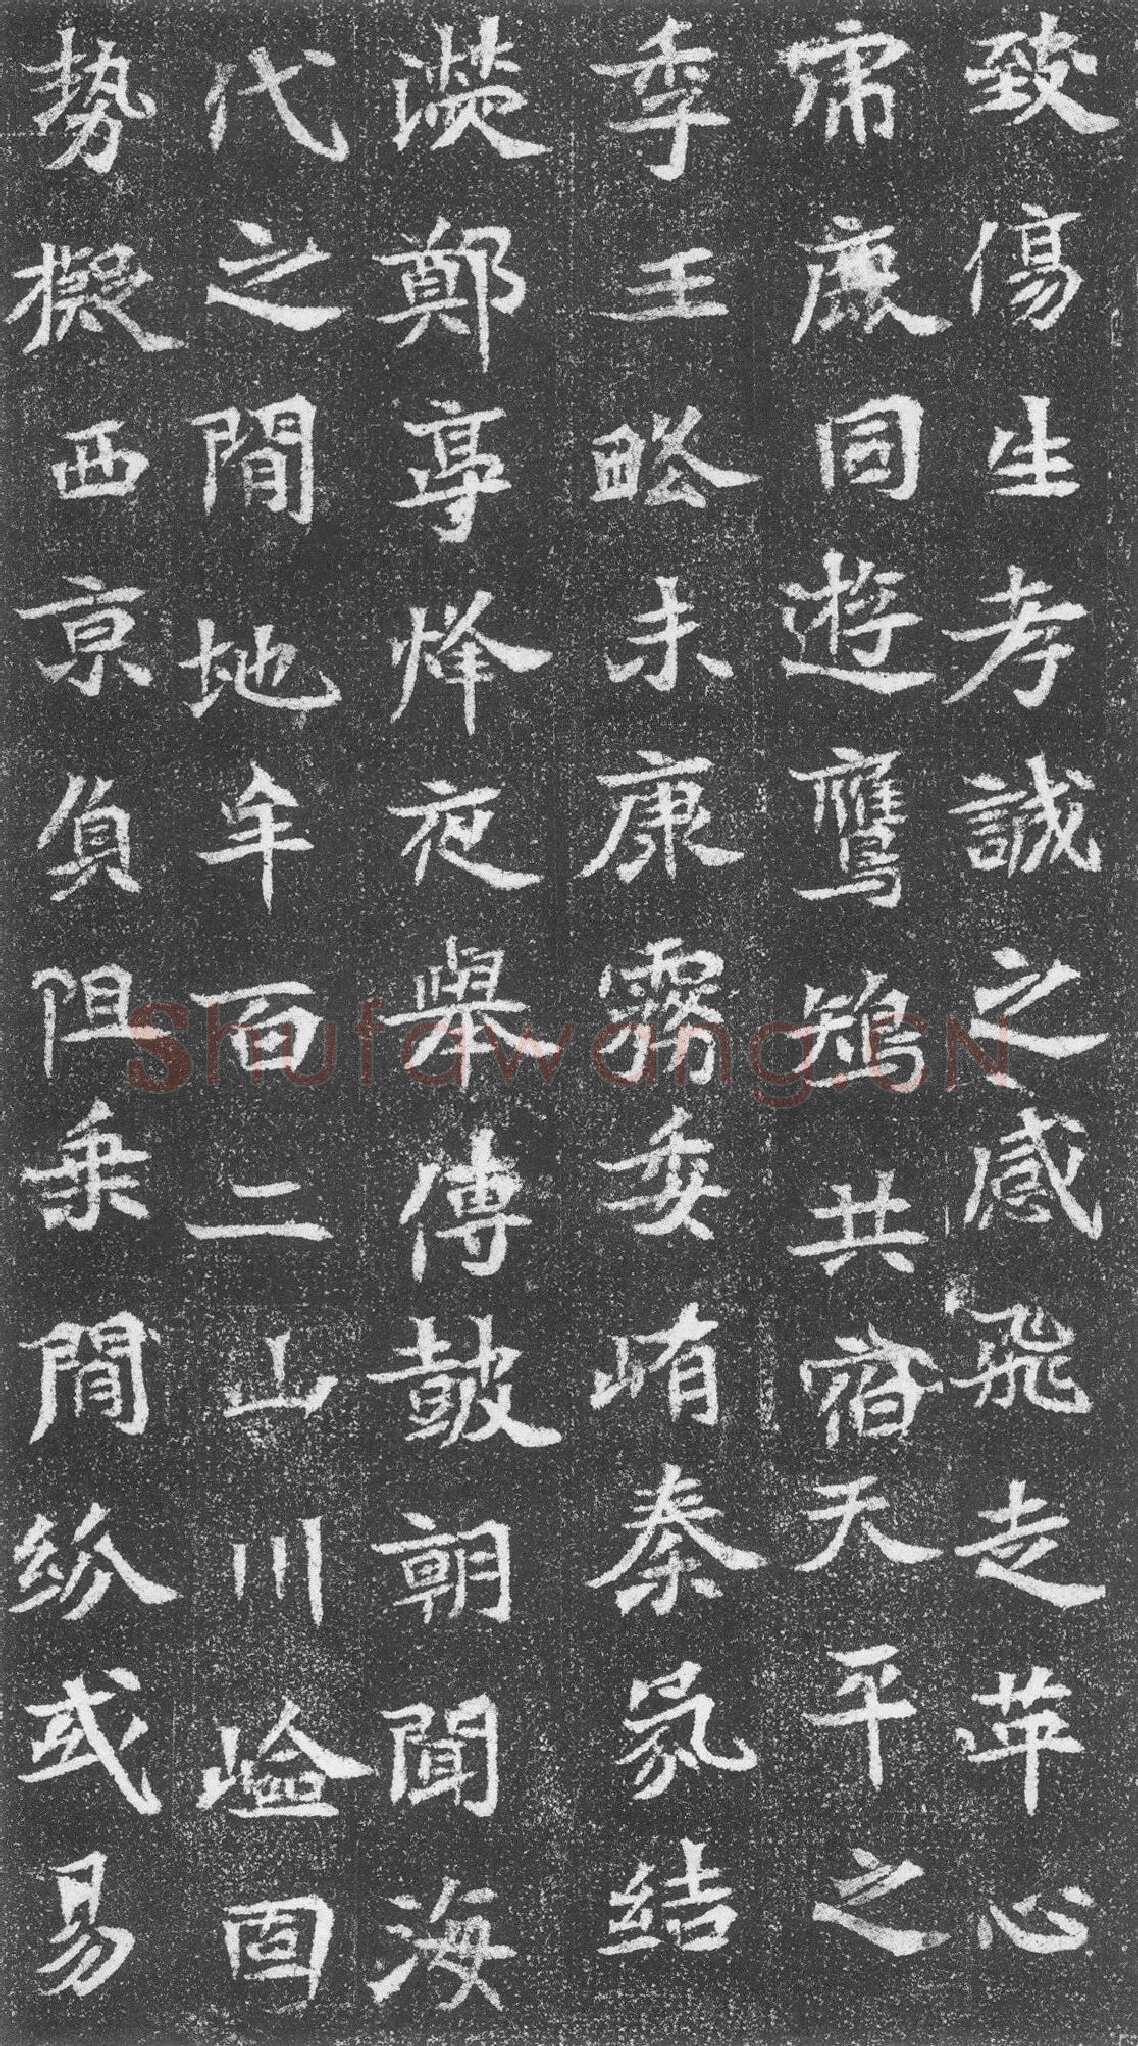 致傷生孝誠之感飛走革心
虎鹿同遊鷹鴙共宿天平之
季王略未康霧委崤秦氛結
滎鄭亭烽夜舉傳鼓朝聞海
代之閒地牟百二山川嶮固
勢擬西京負阻乘閒紛或易
Shufawang.CN